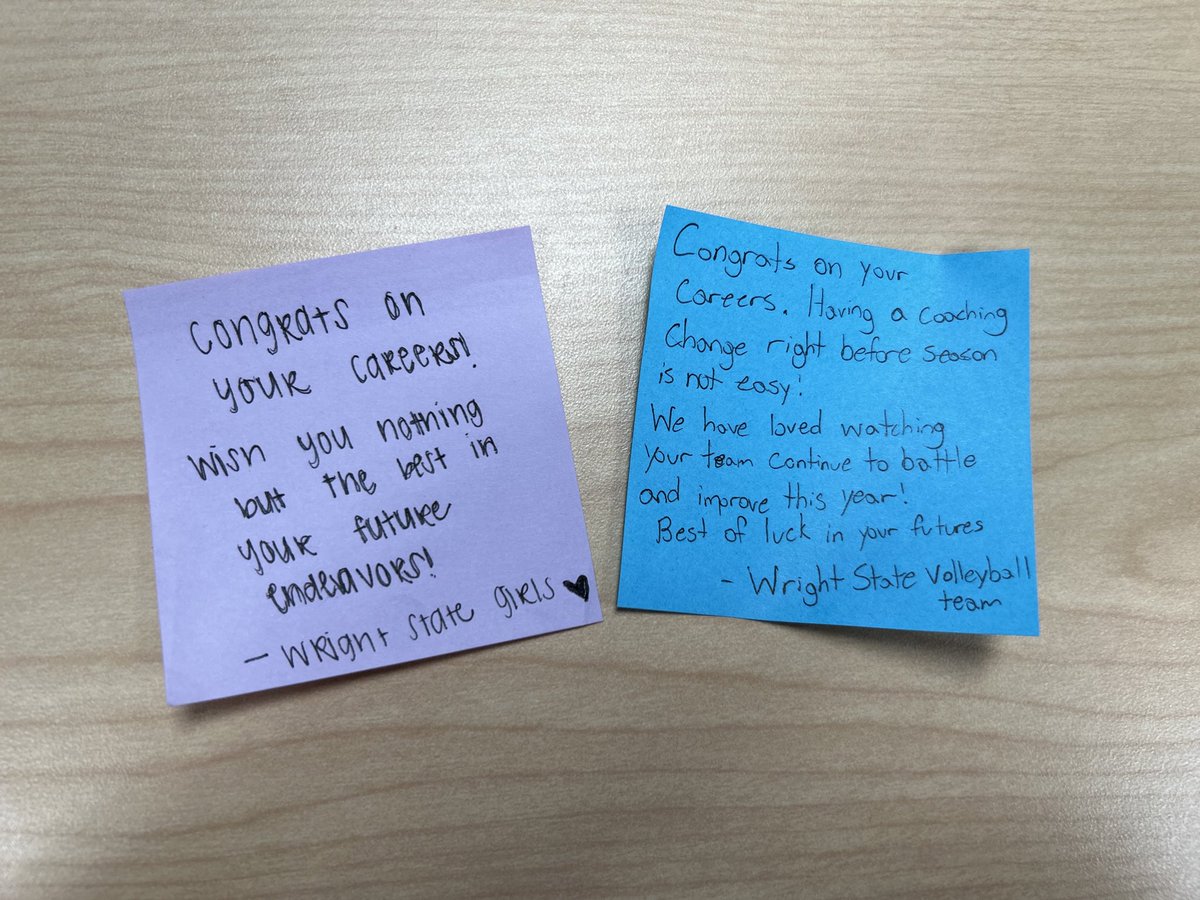 Congrats on
your careers!
Wish you nothing
but the best in
your future
endeavors!
- Wright State girls ♥
Congrats on your
Careers. Having a coaching
Change right before season
is not easy!
We have loved watching
your team continue to battle
and improve this year!
Best of luck in your futures
- Wright State Volleyball
team